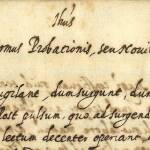 Jhus
omus Probationis, seu Noviti
igilant, dum surgunt, dum
ost pulsum, quo ad surgendu
lectum decenter operiant, a